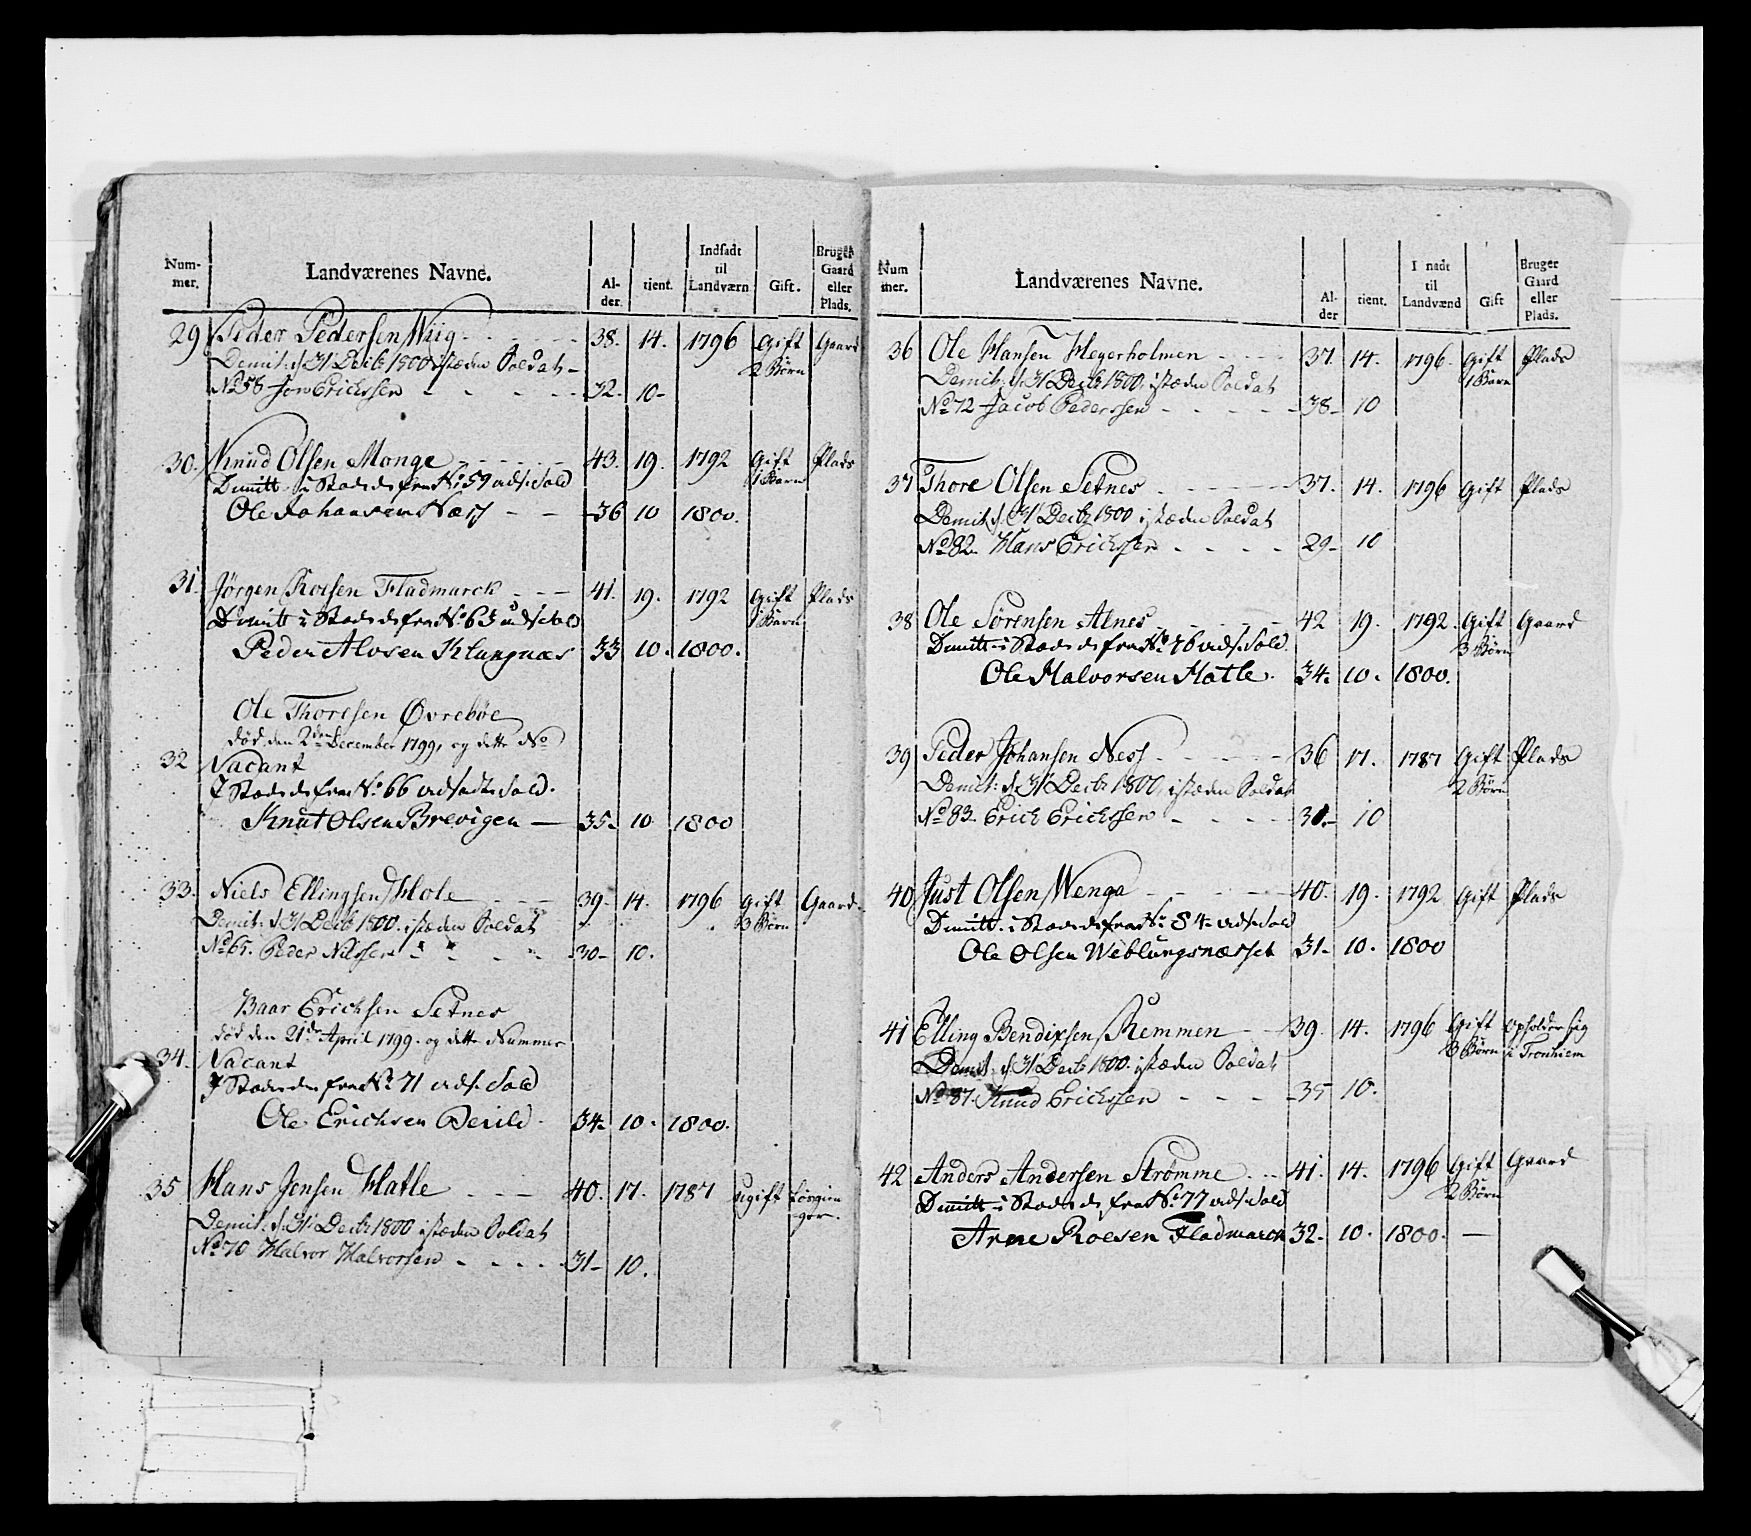 Num- mer. Landværenes Navne. Al- der. tient. Indsadt til Landværn Gift. Bruger Gaard eller Plads.
29 Peder Pedersen Wiig 38. 14. 1796 Gift Gaard
Demit: d. 31 Decbr 1800 istæden Soldat 2 Börn
No 58 Jon Erichssen 32. 10
30. Knud Olsen Monge 43. 19. 1792 Gift Plads
Dimitt i Stæde frem No 59 uds: Sold 1 Barn
Ole Johansen Næss 36 10 1800.
31. Jørgen Roesen Fladmarck 41. 19. 1792 Gift Plads
Dimitt i Stæde frem No 63 udsold 1 Barn
Peder Alvsen Klungnæs 33 10. 1800.
Ole Thoresen Øvrebøe
död den 2den December 1799, og dette No
32 Vacant
I Stæde frem No 66 udsadt Sold.
Knut Olsen Brevigen 35. 10 1800
33. Niels Ellingsen Hole 39. 14. 1796 Gift Gaard.
Demit: d. 31 Decbr 1800. istæden Soldat 3 Börn
No 65. Peder Nilssen 30 10.
Baar Erichsen Setnes
död den 21de April 1799. og dette Nummer
34. Vacant
I Stæde frem No 71 uds. Sold
Ole Erichsen Devild 34. 10. 1800.
35 Hans Jensen Hatle 40. 17. 1787 ugift
Demit: d. 31 Decbr 1800 istæden Soldat
No 70 Halvor Halvorsen 31 10.
Num mer. Landværenes Navne. Al- der tient. I nadt til Landvænd Gift Bruger Gaard eller Plads.
36 Ole Hansen Heyerholmen 37. 14. 1796. Gift Plads
Demit: d. 31 Decbr 1800. istæden Soldat 1 Barn
No 72 Jacob Pederssen 38 10
37 Thore Olsen Setnes 37. 14. 1796 Gift Plads
Demit d. 31 Decbr 1800 istæden Soldat
No 82. Hans Erichssen 29 10
38 Ole Sørensen Alnes 42 19. 1792. Gift Gaard
Dimitt i Stæde frem No 76 uds: Sold. 3 Börn
Ole Halvorsen Hatle. 34. 10. 1800.
39 Peder Johansen Ness 36 17. 1787 Gift Plads
Demit: d. 31 Decbr 1800, istæden Soldat 2 Börn
No 83. Erich Erichssen 30. 10
40 Just Olsen Wenga 40. 19. 1792 Gift Plads
Dimitt. i Stæde frem No 84 uds Sold
Ole Olsen Weblungsnæsset 31 10. 1800
41 Elling Bendixsen Remmen 39. 14. 1796 Gift Opholder sig
Demit: d. 31 Decbr 1800. istæden Soldat 3 Börn i Tronhiem
No 87. Knud Erichssen 35 10.
42 Anders Andersen Strømme 41. 14. 1796 Gift Gaard
Dimitt i Stæde frem No 77 uds Sold 2 Börn
Arne Roesen Fladmarck 32. 10. 1800.